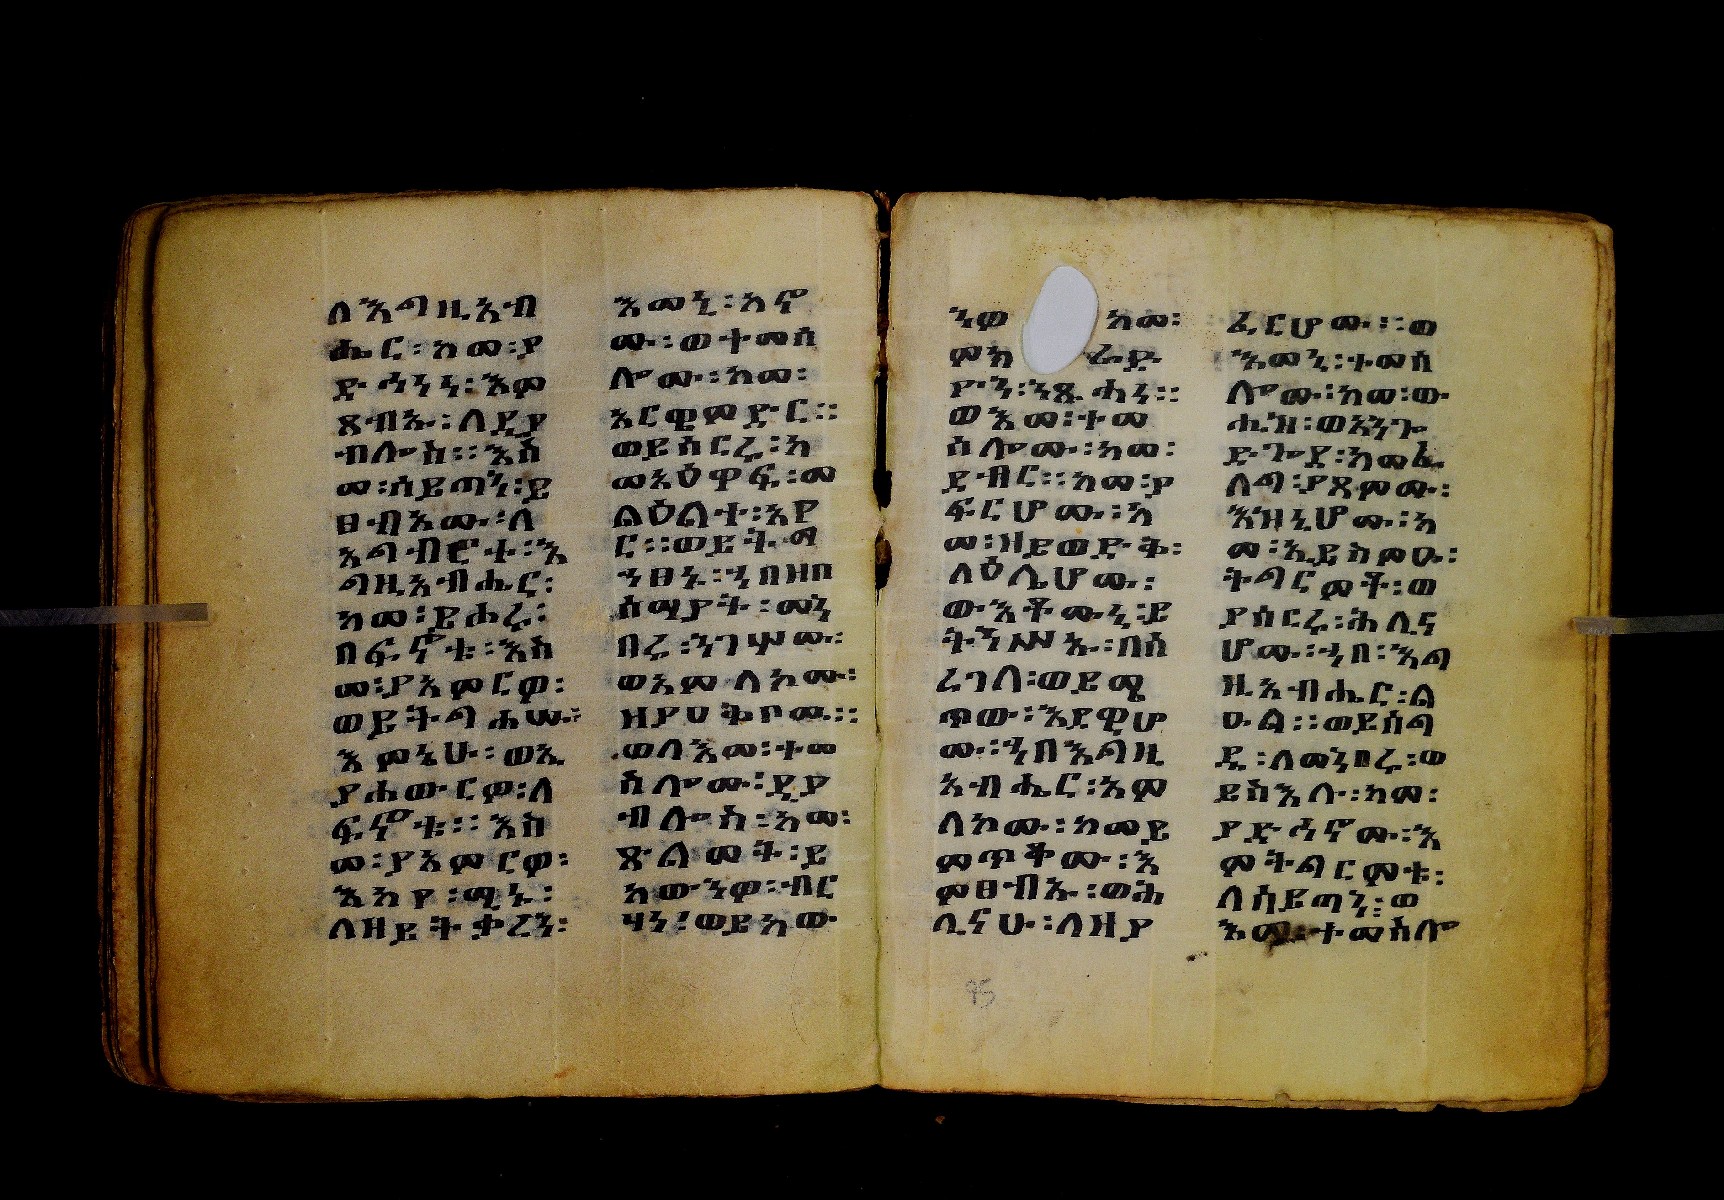 ለእግዚአብ
ሔር፡ከመ፡ያ
ድኅነነ፡እም
ጸብኡ፡ለዲያ
ብሎስ፡፡እስ
መ፡ሰይጣን፡ይ
ፀብአሙ፡ለ
አግብርተ፡እ
ግዚአብሔር፡
ከመ፡ይሑሩ፡
በፍኖቱ፡እስ
መ፡ያአምርዎ፡
ወይትግሐሡ፡
እምኔሁ፡ወኢ
ያሐውርዎ፡ለ
ፍኖቱ፡፡እስ
መ፡ያአምርዎ፡
እከየ፡ሚኑ፡
ለዘይትቃረን፡
እመኒ፡አኖ
ሙ፡ወተመሰ
ሎሙ፡ከመ፡
አርዌምድር፡፡
ወይሰርር፡እ
መአዕዋፍ፡መ
ልዕልተ፡አየ
ር፡፡ወይትማ
ኅፀኑ፡ኀበዘበ
ሰማያት፡መን
በሩ፡ንገሦሙ፡
ወአምላኮሙ፡
ዘያሀቅቦሙ፡፡
ወለእመ፡ተመ
ሰሎሙ፡ዲያ
ብሎስ፡ከመ፡
ጽልመት፡ይ
ከውንዎ፡ብር
ሃነ፡ወይከው
ንዎ ከመ፡
ምክ ራድ
የን፡ንጹሐን፡፡
ወእመ፡ተመ
ሰሎሙ፡ከመ፡
ደብር፡፡ከመ፡ያ
ፍርሆሙ፡ከ
መ፡ዘይወድቅ፡
ላዕሌሆሙ፡
ውእቶሙኒ፡ይ
ትኀሥኡ፡በሰ
ረገላ፡ወይሜ
ጥው፡እደዊሆ
ሙ፡ኀበእግዚ
አብሔር፡አም
ላኮሙ፡ከመይ
ምጥቶሙ፡እ
ምፀብኡ፡ወሕ
ሊናሁ፡ለዘያ
ፈርሆሙ፡፡ወ
እመኒ፡ተመሰ
ሎሙ፡ከመ፡ው
ሒዝ፡ወአንጐ
ድጓደ፡ከመፈ
ለግ፡ያጸምሙ፡
እዝኒሆሙ፡ከ
መ፡ኢይስምዑ፡
ትግርምቶ፡ወ
ያሰርሩ፡ሕሊና
ሆሙ፡ኀበ፡እግ
ዚአብሔር፡ል
ዑል፡፡ወይሰግ
ዱ፡ለመንበሩ፡ወ
ይስእሉ፡ከመ፡
ያድኅኖሙ፡እ
ምትግርምቱ፡
ለሰይጣን፡ወ
እመ፡ተመሰሎ
95